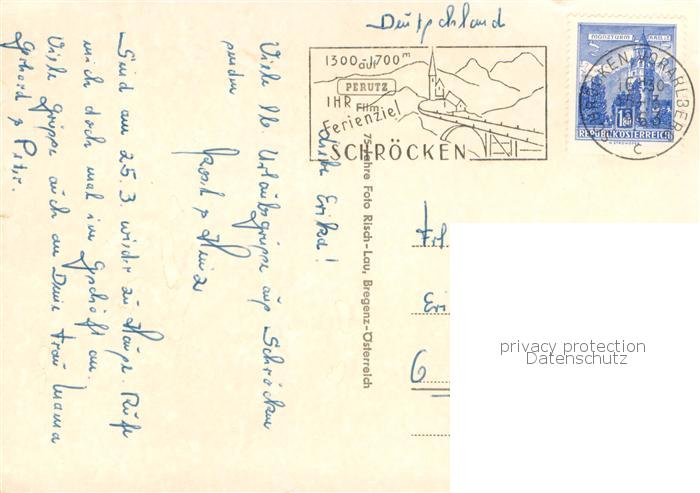 Deutschland
MÜNZTURM HALL i. T.
1300-1700 m
auf
PERUTZ
IHR Film
Ferienziel
SCHRÖCKEN
SCHRÖCKEN, VORARLBERG
c
REPUBLIK ÖSTERREICH
75 Jahre Foto Risch-Lau, Bregenz-Österreich
Liebe Erika!
Viele lb. Urlaubsgrüsse aus Schröcken
senden
& Heinz
Sind am 25.3. wieder zu Hause. Rufe
mich doch mal im Geschäft an.
Viele Grüsse auch an Deine Frau Mama
Gerhard & Peter.
Eri
6
privacy protection
Datenschutz